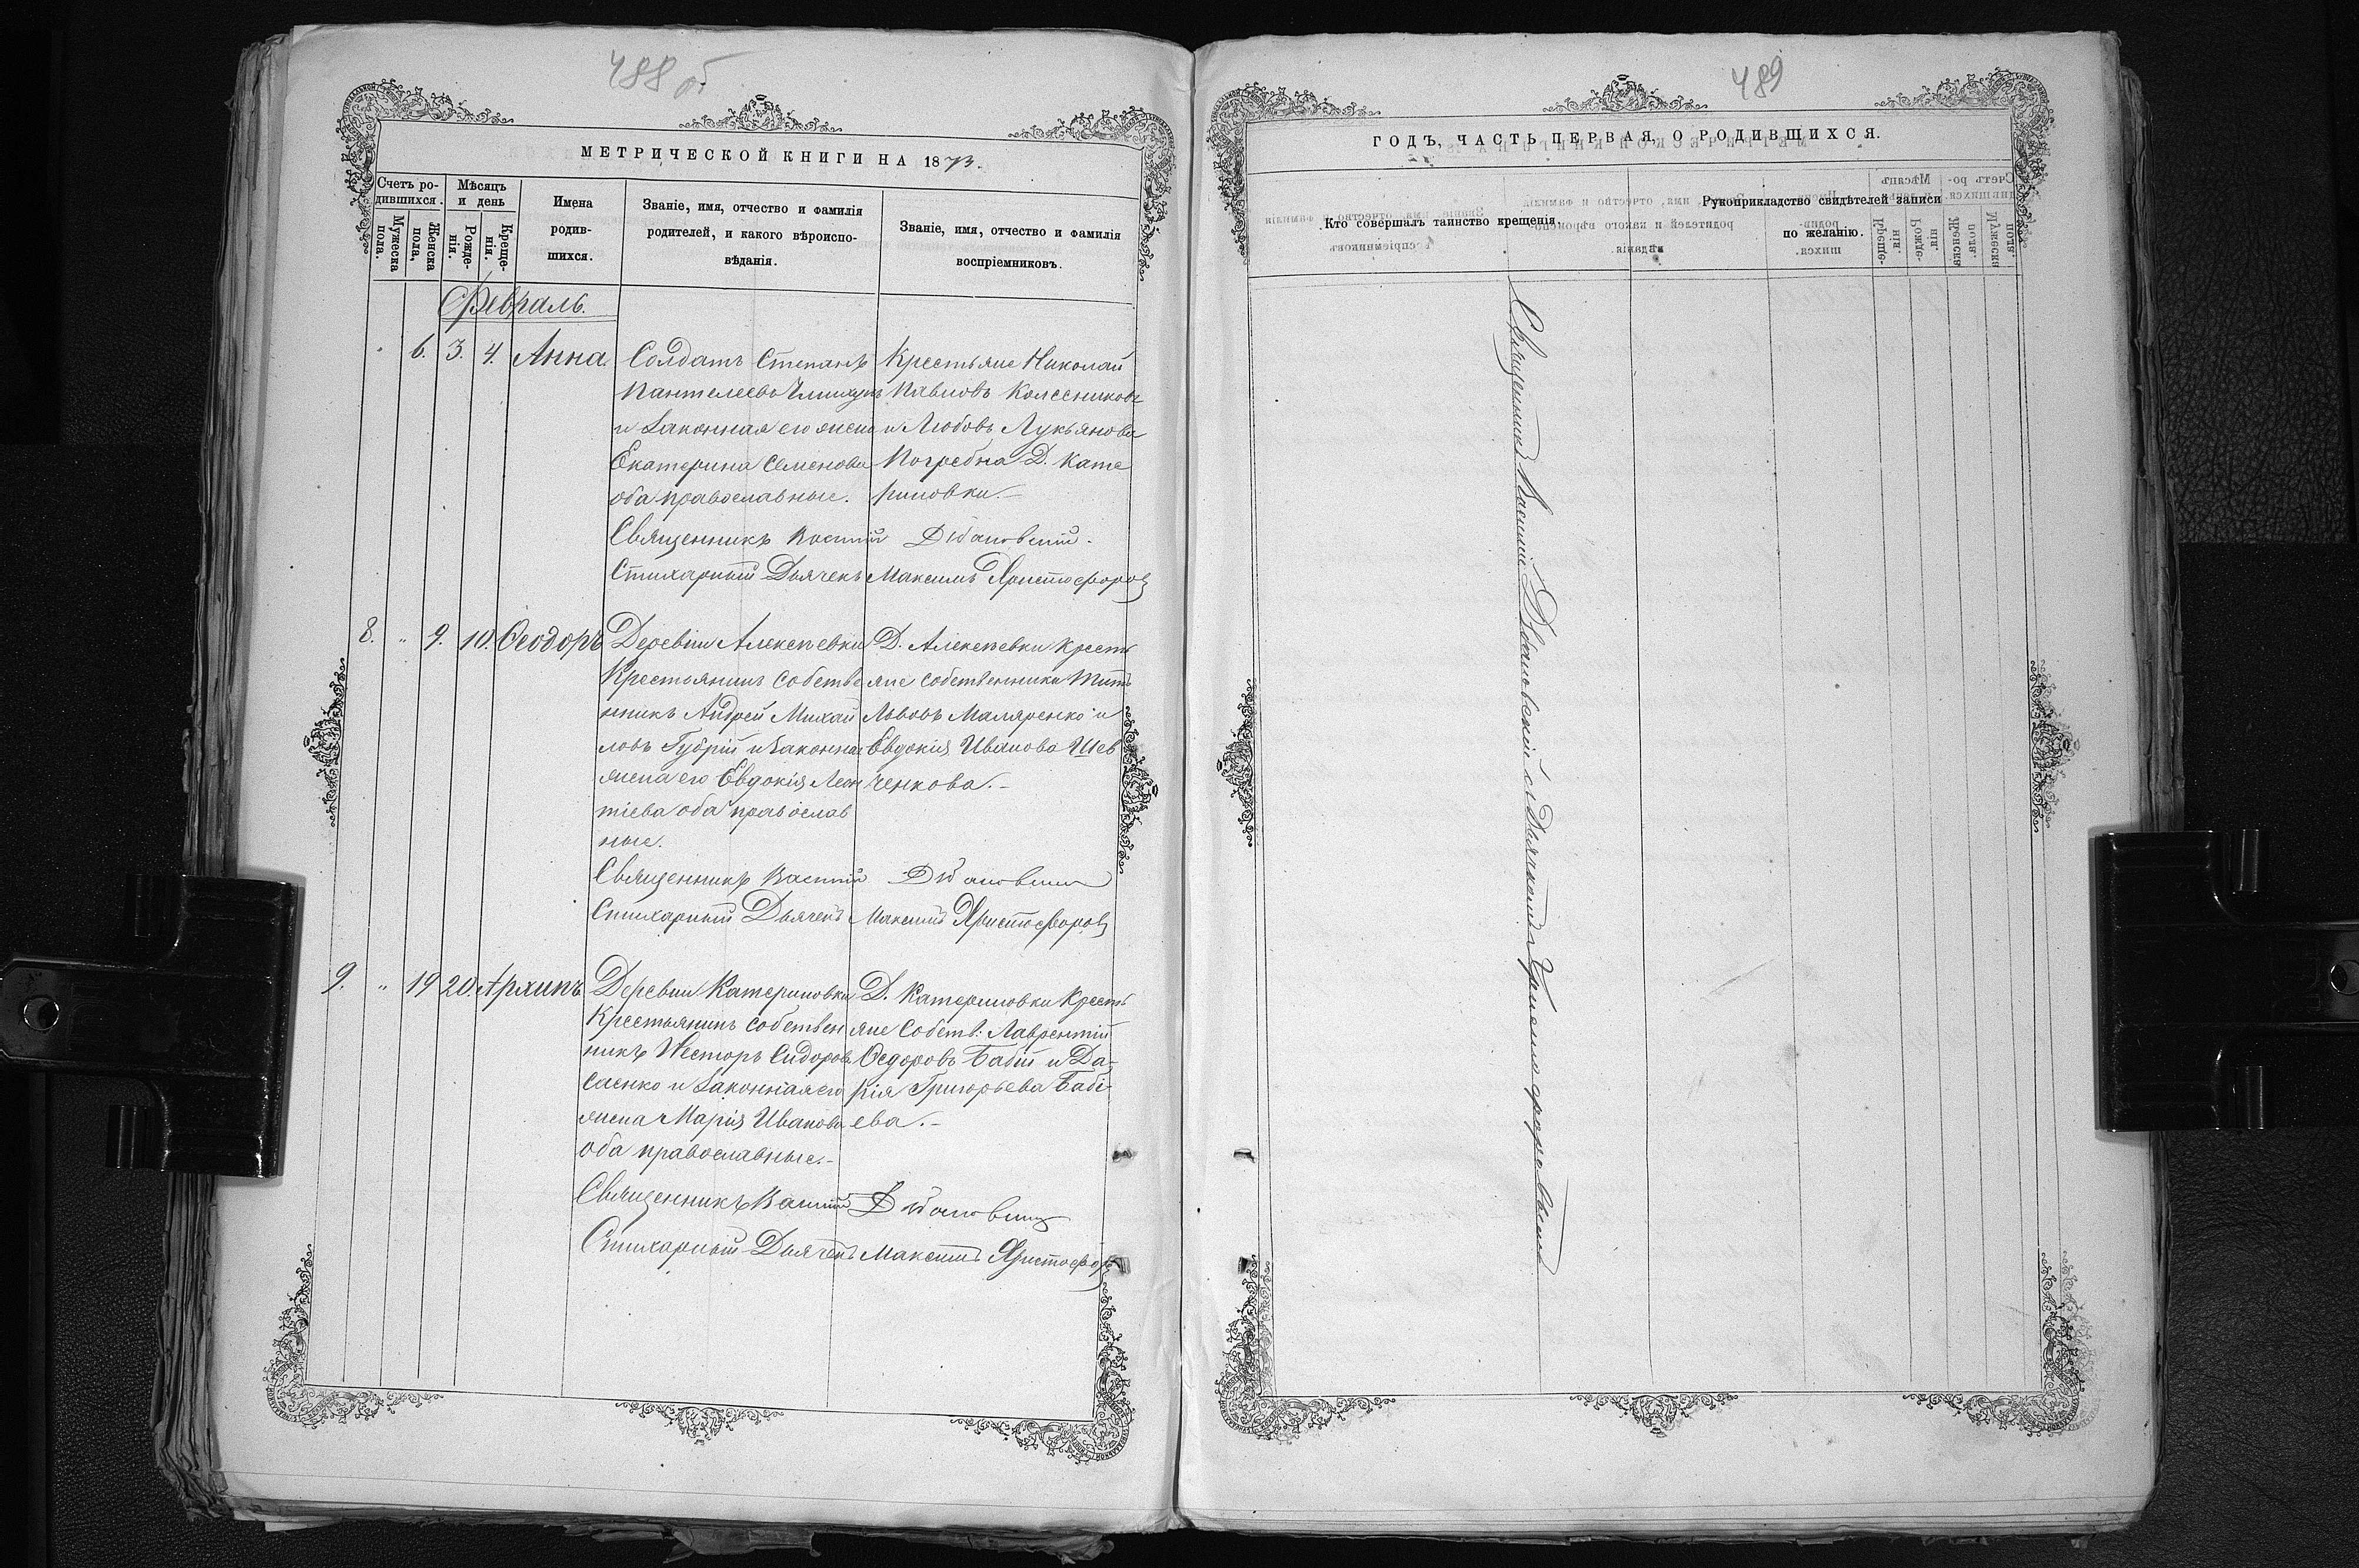 488 об
МЕТРИЧЕСКОЙ КНИГИ НА 1873.
Счетъ ро-
дившихся.
Мужеска
пола.
Женска
пола.
Мѣсяцъ
и день
Рожде-
нія.
Креще-
нія.
Имена
родив-
шихся.
Званіе, имя, отчество и фамилія
родителей, и какого вѣроиспо-
вѣданія.
Званіе, имя, отчество и фамилія
воспріемниковъ.
Февраль.
6. 3. 4. Анна.
Солдатъ Степанъ
Пантелеевъ
и законная его жена
Екатерина Семенова
оба православные.
Крестьяне Николай
Павловъ Колесниковъ
и Любовь Лукьянова
Погребна Д. Кате
риновки.-
Священникъ Василій
Стихарный Дьячекъ Максимъ Христофоровъ
8. „ 9. 10. Ѳеодоръ
Деревни Алексѣевки
Крестьянинъ собстве
нникъ Андрей Михай
ловъ Губрій и законная
жена его Евдокія Леон
тіева оба православ
ные.
Д. Алексѣевки Кресть
яне собственники Титъ
Львовъ Маляренко и
Евдокія Иванова Шев
ченкова.-
Священникъ Василій
Стихарный Дьячекъ Максимъ Христофоровъ
9. „ 19 20. Архипъ
Деревни Катериновки
Крестьянинъ собствен
никъ Несторъ Сидоровъ
Саенко и законная его
жена Марія Иванова
оба православные.-
Д. Катериновки Кресть
яне Собств: Лаврентій
Ѳедоровъ Бабій и Да-
рія Григорьева Бабі-
ева.-
Священникъ Василій
Стихарный Дьячекъ Максимъ Христофоровъ
489
ГОДЪ, ЧАСТЬ ПЕРВАЯ, О РОДИВШИХСЯ.
Кто совершалъ таинство крещенія.
Рукоприкладство свидѣтелей записи
по желанію.
Священникъ Василій съ Дьячкомъ